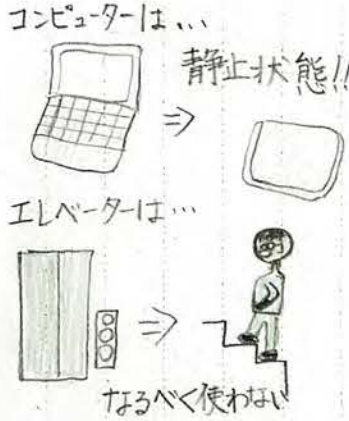 コンピューターは…
静止状態!!
エレベーターは…
なるべく使わない